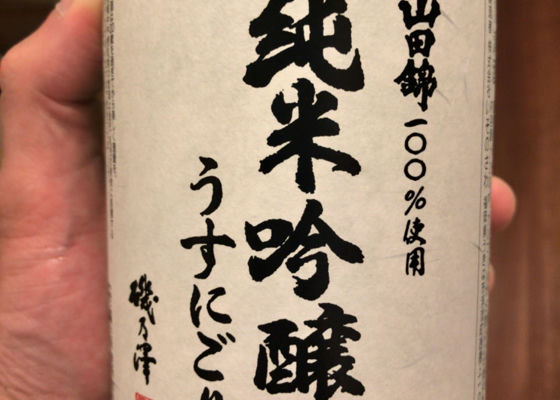 山田錦一〇〇%使用
純米吟醸
うすにごり
磯乃澤